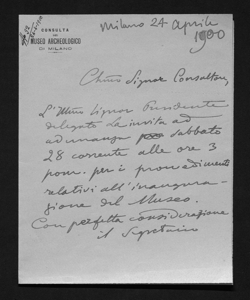 Milano 24 Aprile
1900
CONSULTA
DEL
MUSEO ARCHEOLOGICO
DI MILANO
Signor Consultore,
L'Ill.mo Signor Presidente
delegato La invita ad
adunanza sabbato
28 corrente alle ore 3
pom. per i provvedimenti
relativi all'inaugura-
zione del Museo.
Con perfetta considerazione
il Segretario